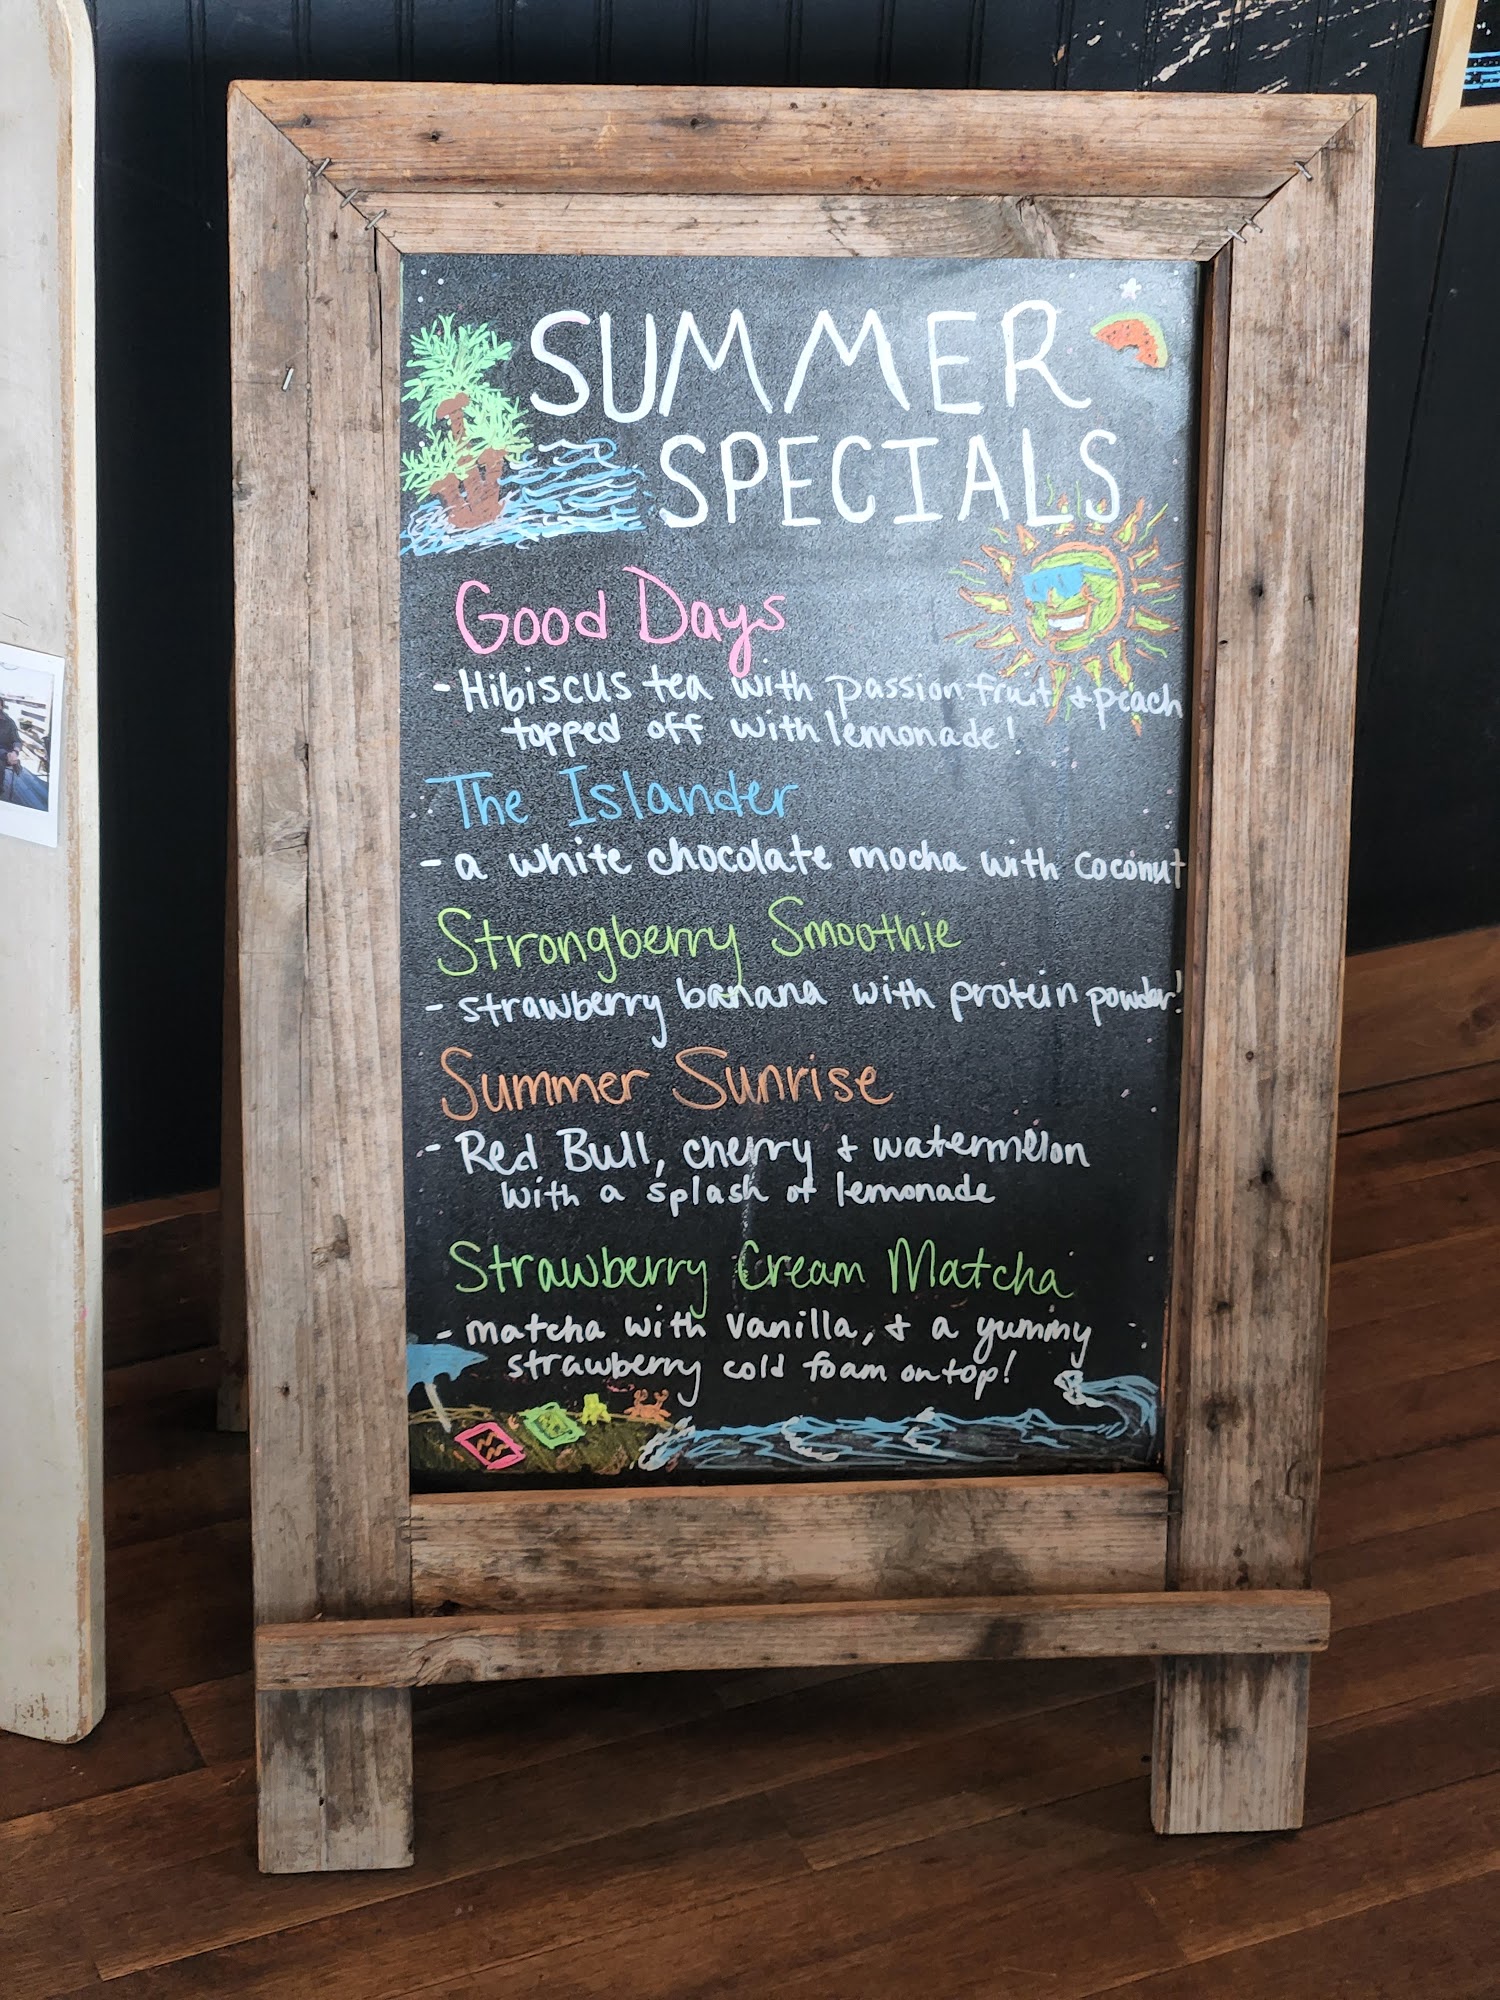 SUMMER
SPECIALS
Good Days
- Hibiscus tea with passionfruit + peach
topped off with lemonade!
The Islander
- a white chocolate mocha with coconut
Strongberry Smoothie
- strawberry banana with protein powder!
Summer Sunrise
- Red Bull, cherry + watermelon
with a splash of lemonade
Strawberry Cream Matcha
- matcha with vanilla, + a yummy
strawberry cold foam on top!